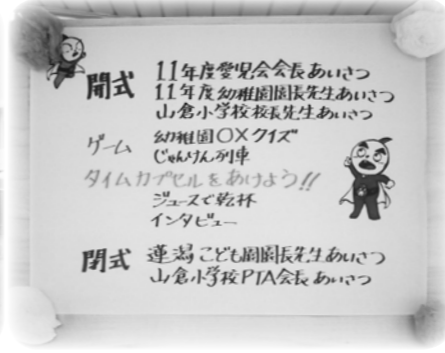 開式 11年度愛児会会長あいさつ
11年度幼稚園園長先生あいさつ
山倉小学校校長先生あいさつ
ゲーム 幼稚園○×クイズ
じゃんけん列車
タイムカプセルをあけよう!!
ジュースで乾杯
インタビュー
閉式 蓮潟こども園園長先生あいさつ
山倉小学校PTA会長あいさつ